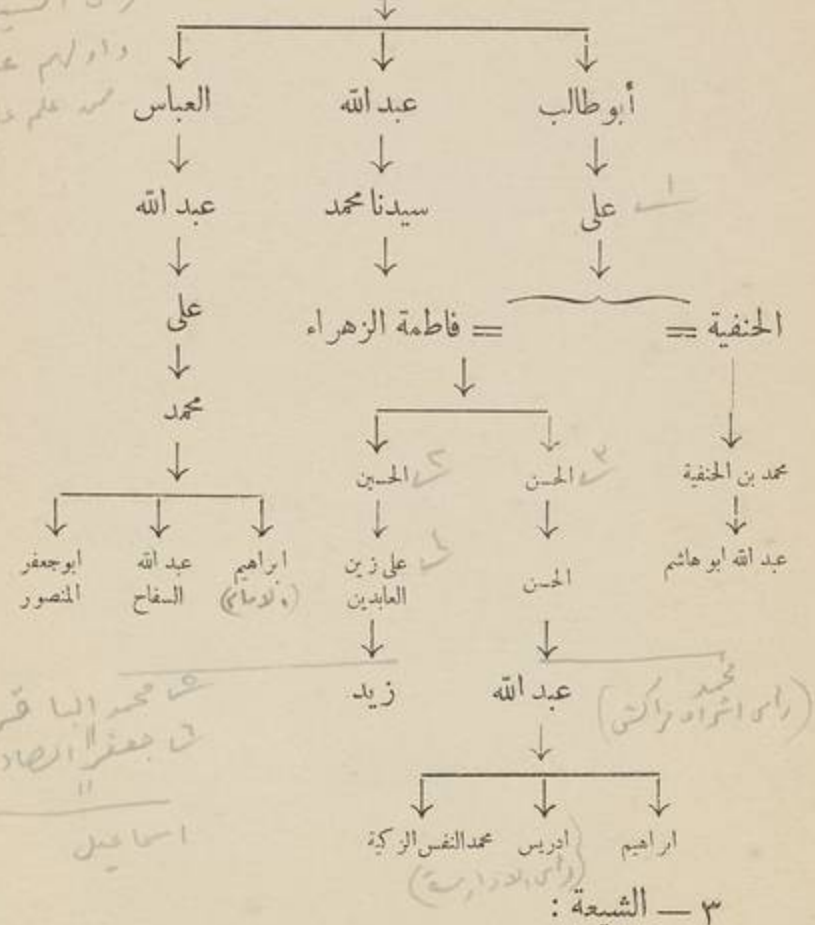 أبو طالب عبد الله العباس
على سيدنا محمد عبد الله
١
على
الحنفية = = فاطمة الزهراء
محمد
محمد بن الحنفية الحسن الحسين
٣ ٢
عبد الله ابو هاشم الحسن على زين العابدين ابراهيم عبد الله السفاح ابو جعفر المنصور
(الامام)
٤
عبد الله زيد
محمد
٥ محمد الباقر
٦ جعفر الصادق
اسماعيل
ابراهيم ادريس محمد النفس الزكية
(رأس الادارسة)
٣ — الشيعة :